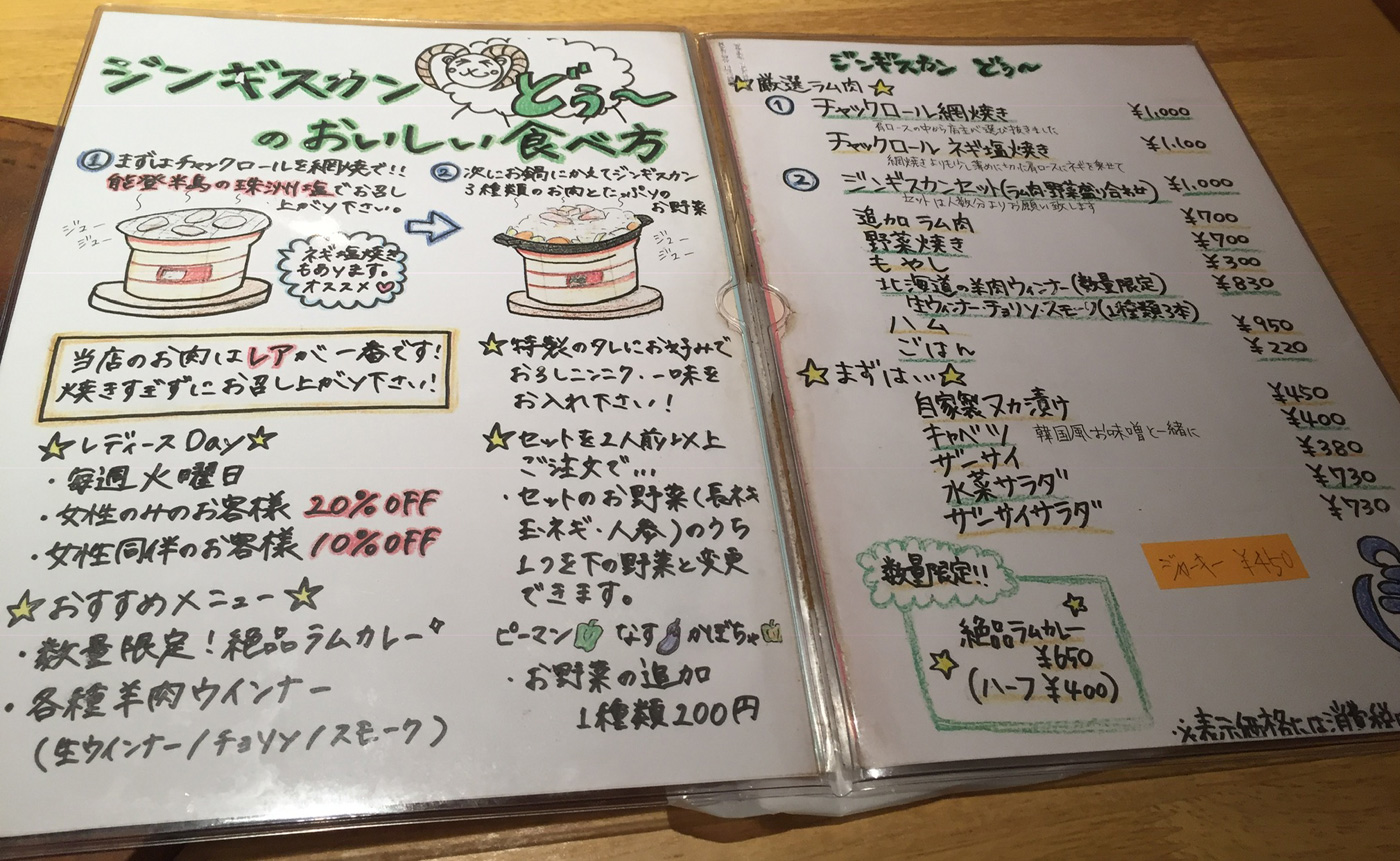 ジンギスカン どぅ〜
のおいしい食べ方
① まずはチャックロールを網焼で!!
能登半島の珠洲塩でお召し
上がり下さい。
ジュー
ジュー
ネギ塩焼き
もあります。
オススメ♡
② 次にお鍋にかえてジンギスカン
3種類のお肉とたっぷりの
お野菜
ジュー
ジュー
当店のお肉はレアが一番です!
焼きすぎずにお召し上がり下さい!
☆レディースDay☆
・毎週火曜日
・女性のみのお客様 20%OFF
・女性同伴のお客様 10%OFF
☆おすすめメニュー☆
・数量限定!絶品ラムカレー
・各種羊肉ウインナー
(生ウインナー/チョリソ/スモーク)
☆特製のタレにお好みで
おろしニンニク、一味を
お入れ下さい!
☆セットを2人前以上
ご注文で…
・セットのお野菜(長ネギ
玉ネギ・人参)のうち
1つを下の野菜と変更
できます。
ピーマン なす かぼちゃ
・お野菜の追加
1種類200円
ジンギスカン どぅ〜
☆厳選ラム肉☆
① チャックロール網焼き ¥1,000
肩ロースの中から店主が選び抜きました
チャックロール ネギ塩焼き ¥1,100
網焼きよりも少し薄めに切った肩ロースにネギを乗せて
② ジンギスカンセット(ラム肉野菜盛り合わせ) ¥1,000
セットは人数分よりお願い致します
追加ラム肉 ¥700
野菜焼き ¥700
もやし ¥300
北海道の羊肉ウィンナー(数量限定) ¥830
生ウィンナー・チョリソ・スモーク(1種類3本)
ハム ¥950
ごはん ¥220
☆まずは…☆
自家製ヌカ漬け ¥450
キャベツ 韓国風お味噌と一緒に ¥400
ザーサイ ¥380
水菜サラダ ¥730
ザーサイサラダ ¥730
ジャーキー ¥450
数量限定!!
絶品ラムカレー
¥650
(ハーフ ¥400)
※表示価格には消費税